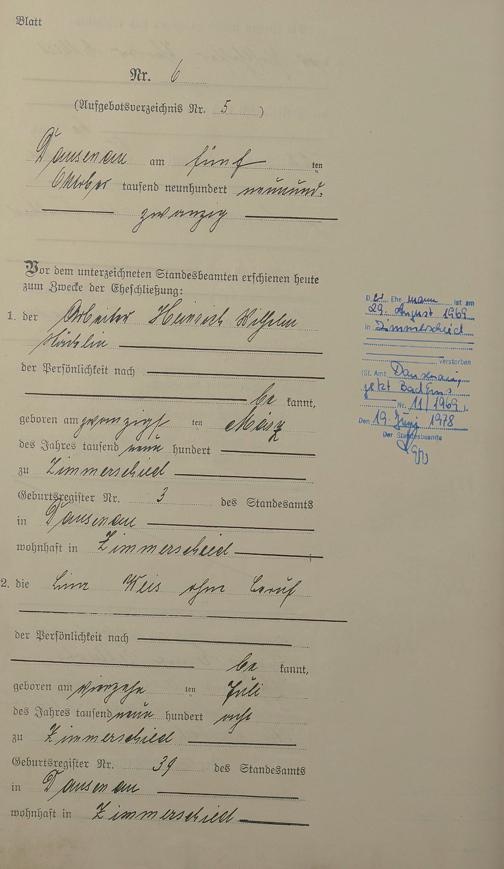 Blatt
Nr. 6
(Aufgebotsverzeichnis Nr. 5 )
Dausenau am fünf ten
Oktober tausend neunhundert neunund-
zwanzig
Vor dem unterzeichneten Standesbeamten erschienen heute
zum Zwecke der Eheschließung:
1. der Arbeiter Heinrich Wilhelm
der Persönlichkeit nach
be kannt,
geboren am zwanzigst ten März
des Jahres tausend neun hundert
zu Zimmerscheid
Geburtsregister Nr. 3 des Standesamts
in Dausenau
wohnhaft in Zimmerscheid
2. die Lina Weis ohne Beruf
der Persönlichkeit nach
be kannt,
geboren am vierzehn ten Juli
des Jahres tausend neun hundert acht
zu Zimmerscheid
Geburtsregister Nr. 39 des Standesamts
in Dausenau
wohnhaft in Zimmerscheid
D er Ehemann ist am
29. August 1969
in Zimmerscheid
verstorben
(St. Amt Dausenau,
jetzt Bad Ems
Nr. 11/1969 ).
Den 19. Juni 1978
Der Standesbeamte